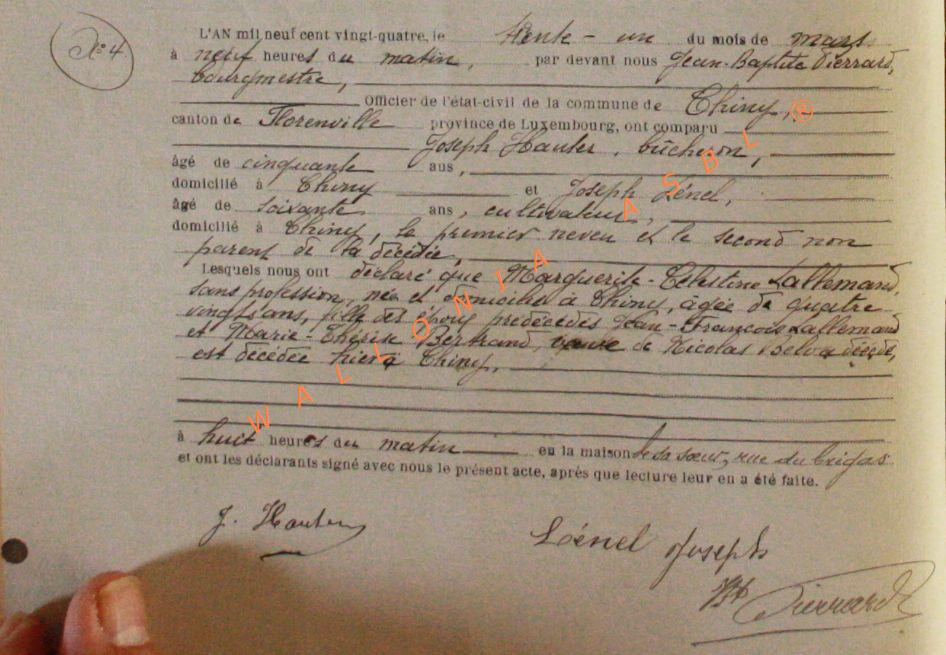 N° 4
L'AN mil neuf cent vingt-quatre, le trente - un du mois de mars
à neuf heures du matin, par devant nous Jean-Baptiste Pierrard,
bourgmestre,
Officier de l'état-civil de la commune de Chiny,
canton de Florenville province de Luxembourg, ont comparu
Joseph Hauter, bûcheron,
âgé de cinquante ans,
domicilié à Chiny et Joseph Lénel,
âgé de soixante ans, cultivateur,
domicilié à Chiny, le premier neveu et le second non
parent de la décédée,
Lesquels nous ont déclaré que Marguerite-Célestine Lallemand,
sans profession, née et domiciliée à Chiny, âgée de quatre
vingts ans, fille des époux prédécédés Jean-François Lallemand
et Marie-Thérèse Bertrand, veuve de Nicolas Belva décédé,
est décédée hier à Chiny,
à huit heures du matin en la maison de sa sœur, rue du
et ont les déclarants signé avec nous le présent acte, après que lecture leur en a été faite.
J. Hauter
Lénel Joseph
JB Pierrard
WALLONIA ASBL ®